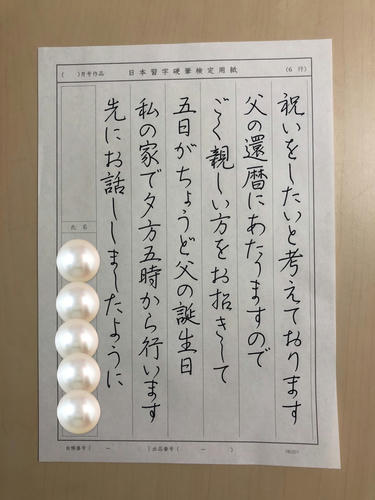 日本習字硬筆検定用紙
(6 行)
(　)月号作品
祝いをしたいと考えております
父の還暦にあたりますので
ごく親しい方をお招きして
五日がちょうど父の誕生日
私の家で夕方五時から行います
先にお話ししましたように
氏名
(　－　)出品番号(　－　)